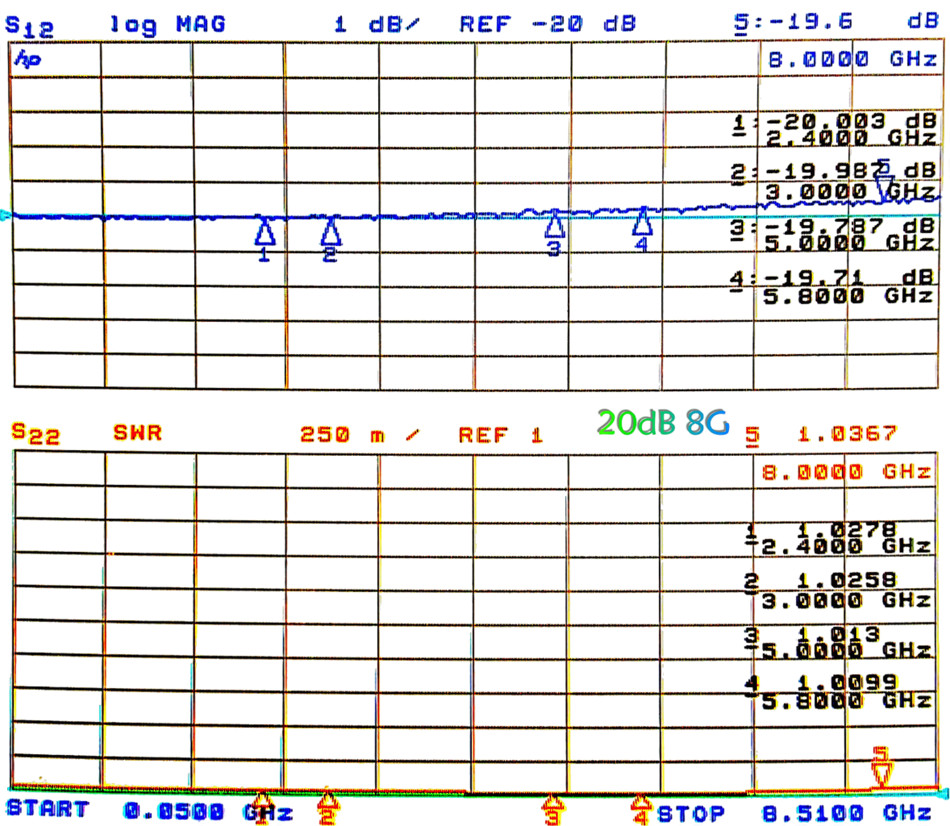 S12 log MAG 1 dB/ REF -20 dB 5:-19.6 dB
hp 8.0000 GHz
1:-20.003 dB
2.4000 GHz
2:-19.987 dB
5
3.0000 GHz
3:-19.787 dB
5.0000 GHz
1 2 3 4
4:-19.71 dB
5.8000 GHz
S22 SWR 250 m / REF 1 20dB 8G 5 1.0367
8.0000 GHz
1 1.0278
2.4000 GHz
2 1.0258
3.0000 GHz
3 1.013
5.0000 GHz
4 1.0099
5.8000 GHz
5
1 2 3 4
START 0.0500 GHz STOP 8.5100 GHz